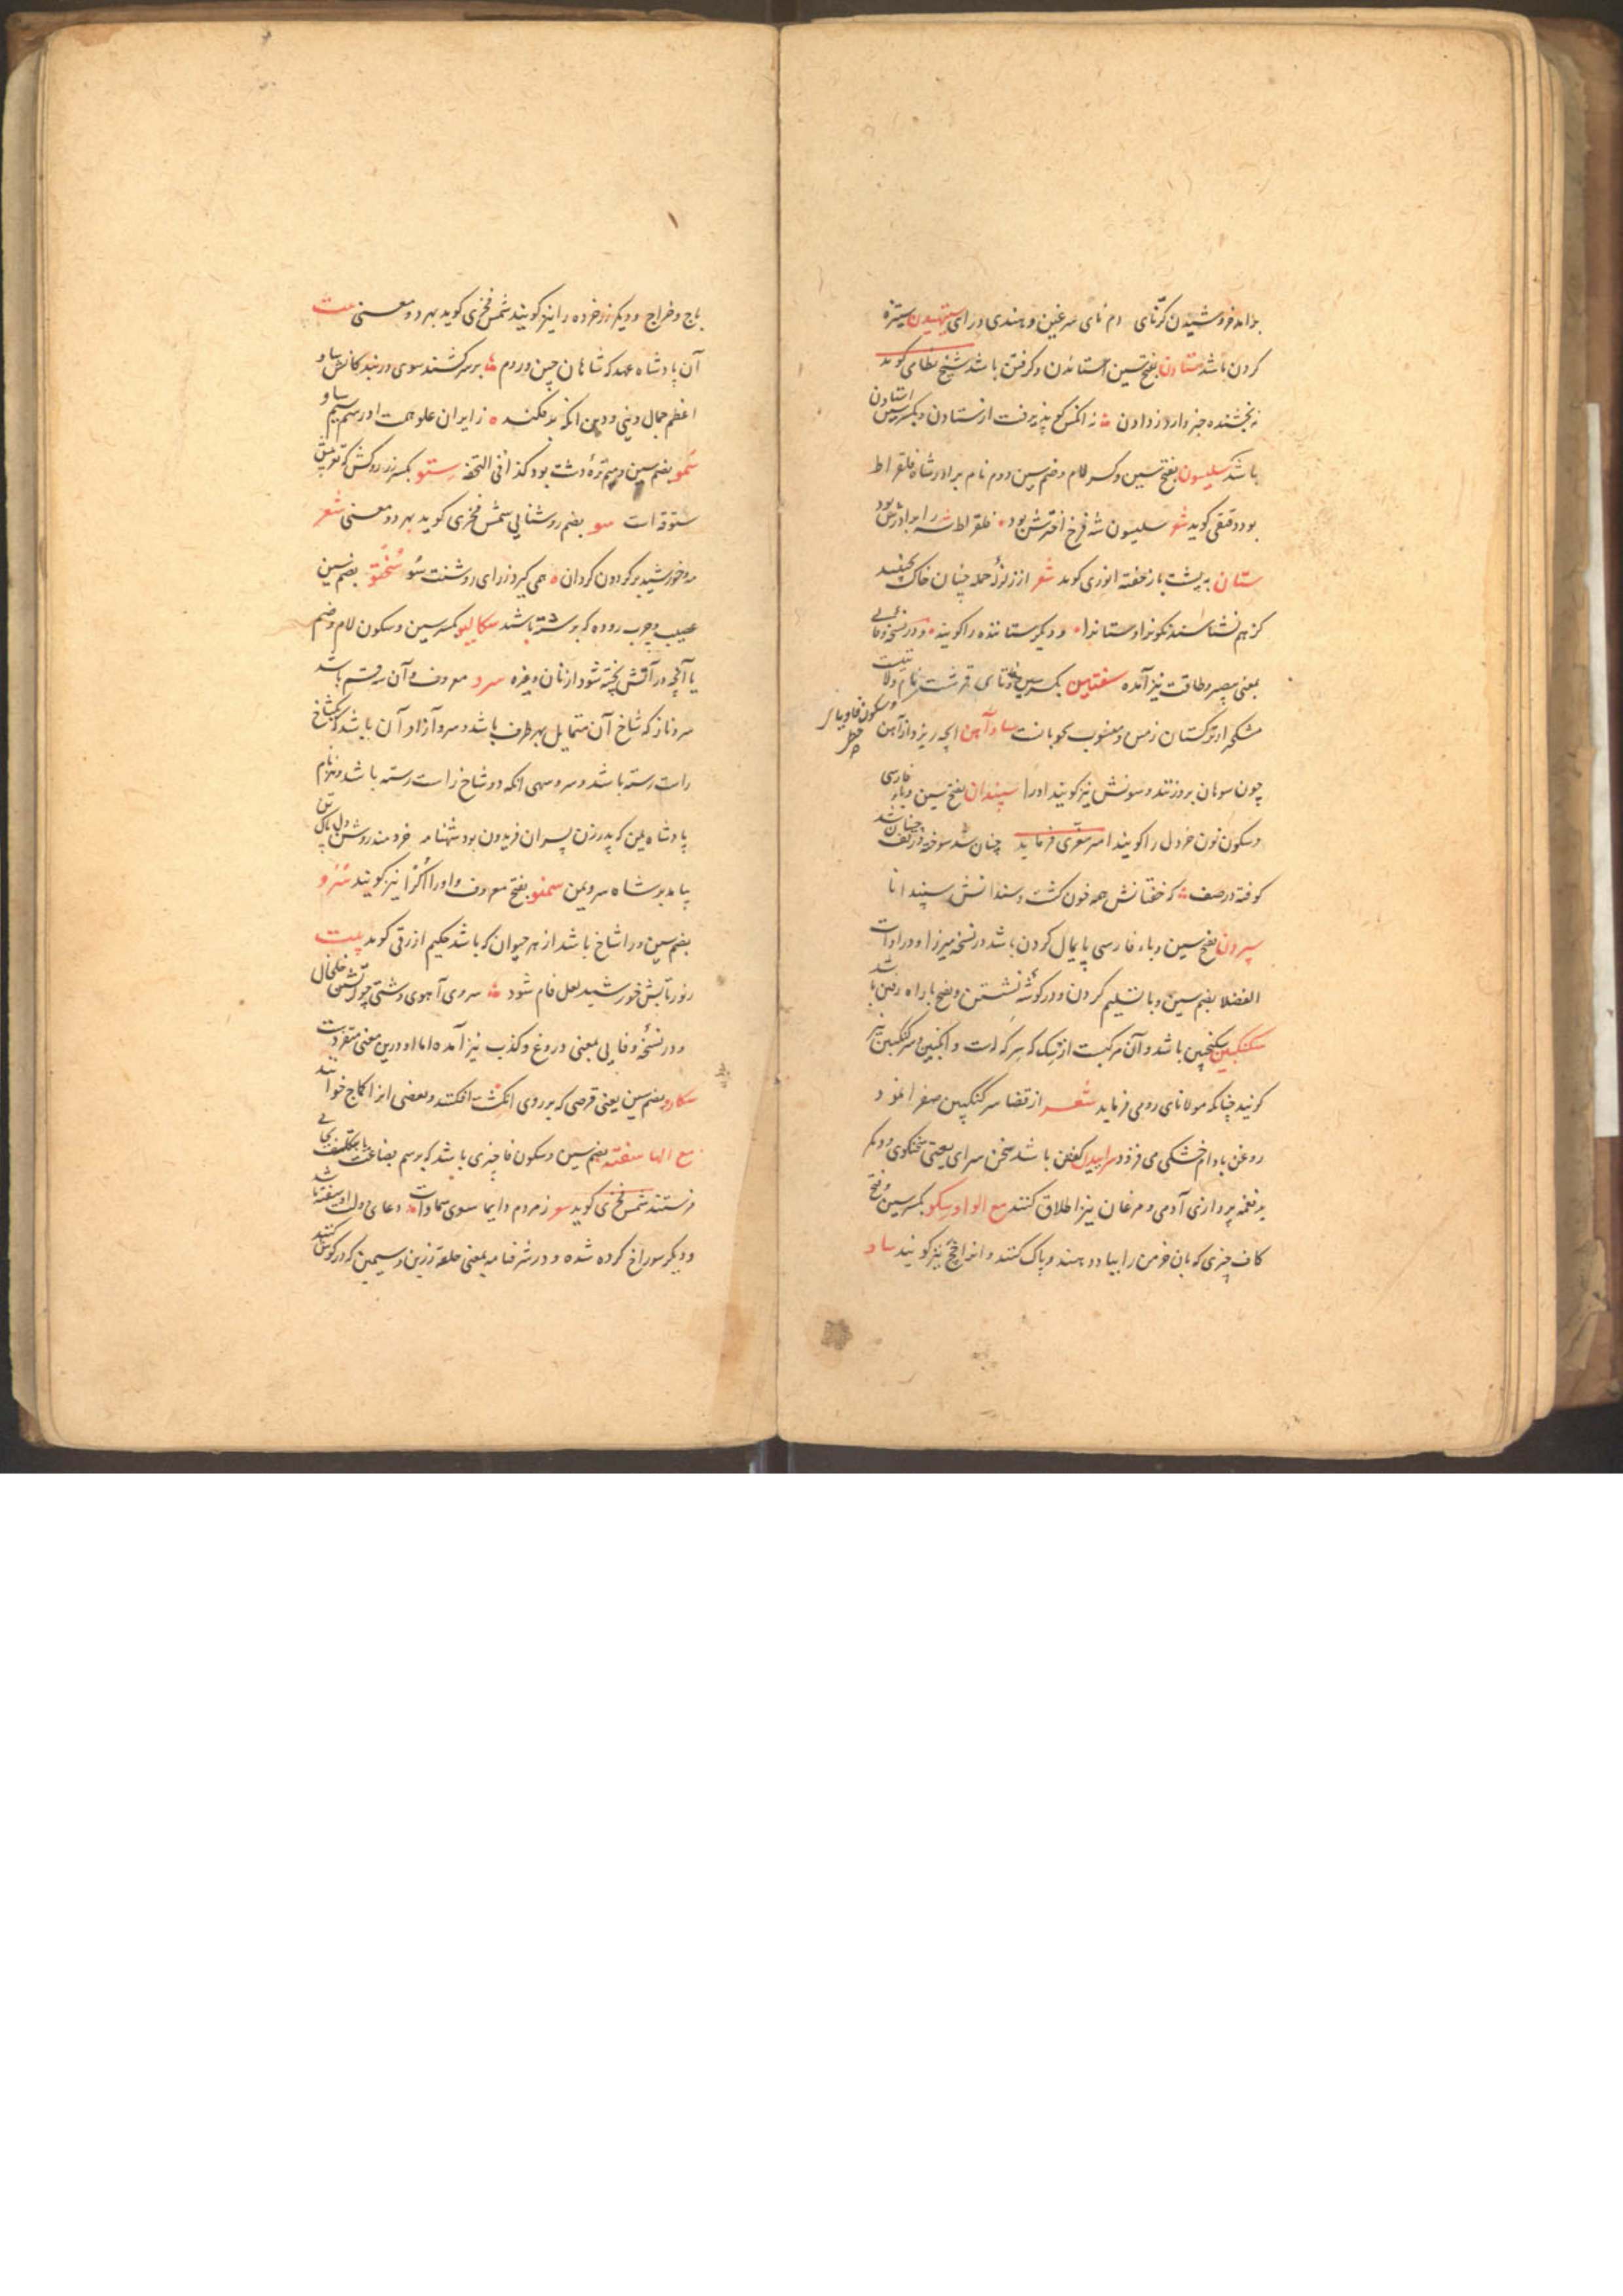 برآمد خروشیدن کرنای دم نای سرغین و هندی درای ستهیدن ستیزه
کردن باشد ستادن بفتح سین استاندن و کرفتن باشد شیخ نظامی کوید
نه انکس کو پذیرفت از ستادن و بکسر سین استادن
باشد سلیسون بفتح سین و کسر لام و ضم سین دوم نام برادر شاه فلقراط
بود دقیقی کوید شعر سلیسون شه فرخ اخترش بود فلقراط شه را برادرش بود
ستان به پشت باز خفته انوری کوید شعر از زلزله حمله چنان خاک بجنبد
کز هم نشناسند نکونرا و ستانرا و دیکر ستاننده را کویند و در نسخه وفائی
بمعنی صبر و طاقت نیز آمده سقتین بکسر سین و تای قرشت نام ولایتیست
و سکون فا و یاء حطی
مشکخیز از ترکستان زمین و منسوب بخوبانست ساوآهن انچه ریزد از آهن
چون سوهان برو زنند و سونش نیز کویند اورا سپندان بفتح سین و باء فارسی
و سکون نون خردل را کویند امیر معزی فرماید چنان شد سوخته در تف چنان شد
کوفته در صف که خفتانش همه خون کشت و سندانش سپندانا
سپردن بفتح سین و باء فارسی پایمال کردن باشد در نسخه میرزا و در ادات
الفضلا بضم سین و با تسلیم کردن و در کوشه نشستن و بفتح با راه رفتن باشد
سکنکبین سکنجبین باشد و آن مرکبست از سک که سرکه است و انکبین و سرکنکبین نیز
کویند چنانکه مولانای رومی فرماید شعر از قضا سرکنکبین صفرا نمود
روغن بادام خشکی می فزود سراییدن کفتن باشد سخن سرای یعنی سخنکوی و دیکر
بر نغمه پردازی آدمی و مرغان نیز اطلاق کنند مع الواو سکو بکسر سین و فتح
کاف چیزی که بان خرمن را بباد دهند و پاک کنند و انرا نیز کویند ساو
باج و خراج و دیکر زر خرده را نیز کویند شمس فخری کوید بهر دو معنی بیت
آن پادشاه عهد که شاهان چین و روم بر سر کشند سوی در بندکانش ساو
اعظم جمال دنیی و دین انکه بر فکند ز ایران علو همت او رسم سیم ساو
سمو بضم سین و میم تره دشت بود کذا فی التحفه ستو بکسر زر روکش که تعریبش
ستوقه است سو بضم روشنایی شمس فخری کوید بهر دو معنی شعر
مه و خورشید بر کردون کردان همی کیرد ز رای روشنت سو سختو بضم سین
عصیب و چرب روده که بر سرشته باشد سکالیو بکسر سین و سکون لام و ضم
یا آنچه در آتش پخته شود از نان و غیره سرو معروف و آن سه قسم باشد
سرو ناز که شاخ آن متمایل بهر طرف باشد و سرو آزاد آن باشد که یکشاخ
راست رسته باشد و سرو سهی انکه دو شاخ راست رسته باشد و نیز نام
پادشاه یمن که پدر زن پسران فریدون بود شهنامه خردمند روشن دل پاک تن
بیامد بر شاه سرو یمن سمنو بفتح معروف و اورا نیز کویند سرو
بضم سین و را شاخ باشد از هر حیوان که باشد حکیم ازرقی کوید بیت
ز نور تابش خورشید لعل فام شود سروی آهوی دشتی چو آتشی خلخال
و در نسخه وفایی بمعنی دروغ و کذب نیز آمده اما او درین معنی متفردست
سکارو بضم سین یعنی قرصی که بر روی انکشت افکنند و بعضی انرا کماج خوانند
مع الها سفته بضم سین و سکون فا چیزی باشد که برسم بضاعت یا تکلف بجایی
فرستند شمس فخری کوید شعر ز مردم دایما سوی سماوات دعای دولت او سفته باشد
و دیکر سوراخ کرده شده و در شرفنامه بمعنی حلقه زرین و سیمین که در کوش کنند